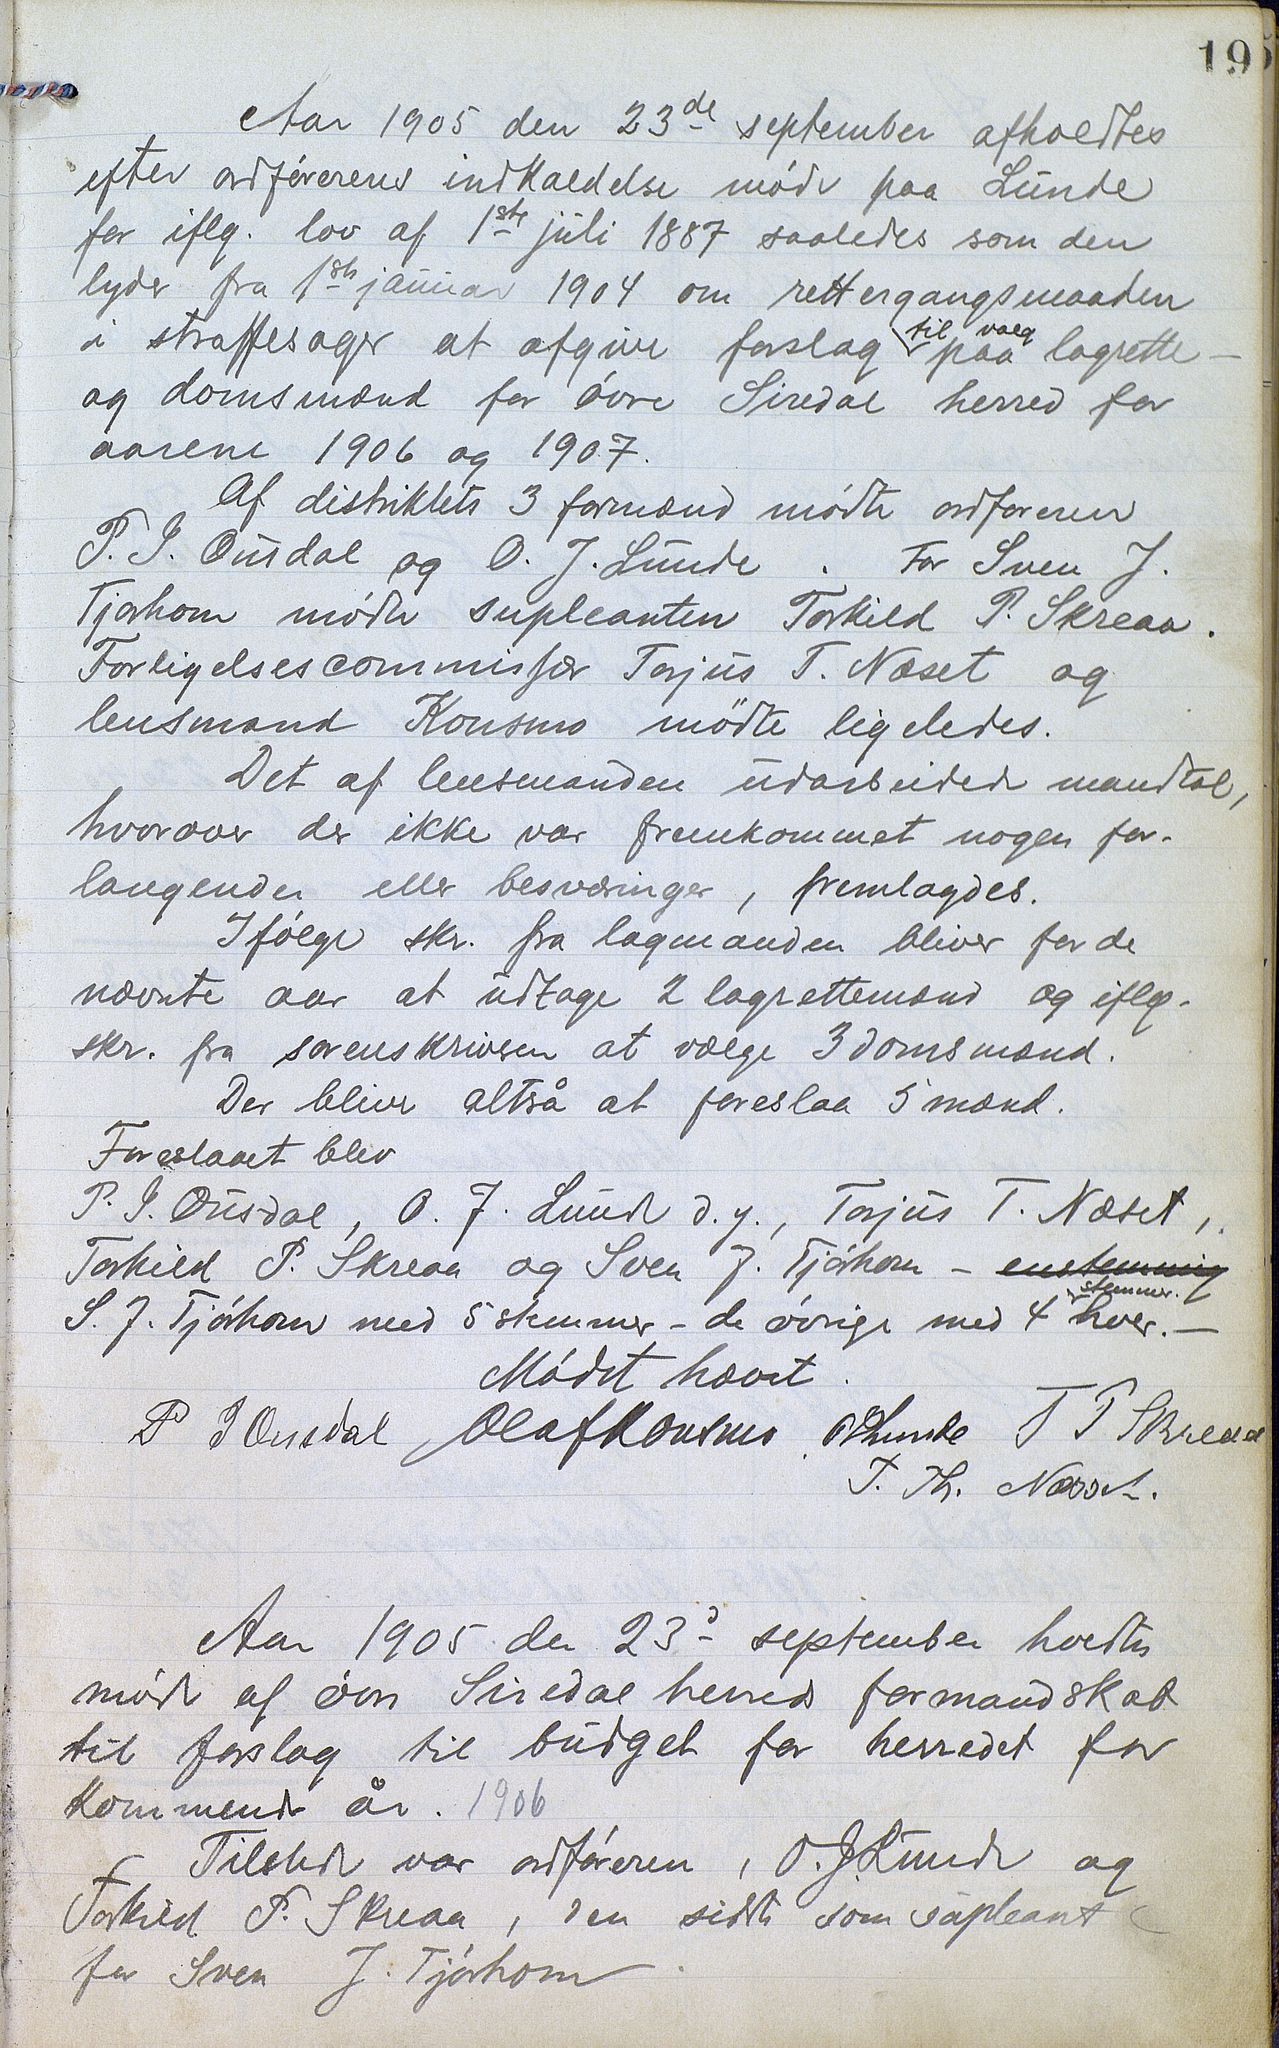 195
Aar 1905 den 23de september afholdtes
efter ordførerens indkaldelse møde paa Lunde
for iflg. lov af 1ste juli 1887 saaledes som den
lyder fra 1ste januar 1904 om rettergangsmaaden
i straffesager at afgive forslag til valg paa lagrette-
og domsmænd for øvre Siredal herred for
aarene 1906 og 1907.
Af distriktets 3 formænd mødte ordføreren
P. I. Ousdal og O. J. Lunde. For Sven J.
Tjørhom mødte supleanten Torkild P. Skreaa.
Forligelsescommissær Torjus T. Næset og
lensmand Konsmo mødte ligeledes.
Det af lensmanden udarbeidede mandtal,
hvorover der ikke var fremkommet nogen for-
langender eller besværinger, fremlagdes.
Ifølge skr. fra lagmanden bliver for de
nævnte aar at udtage 2 lagrettemænd og iflg.
skr. fra sorenskriveren at vælge 3 domsmænd.
Der bliver altså at foreslaa 5 mænd.
Foreslaaet blev
P. I. Ousdal, O. J. Lunde d.y., Torjus T. Næset,
Torkild P. Skreaa og Sven J. Tjørhom – enstemmig
S. J. Tjørhom med 5 stemmer – de øvrige med 4 stemmer hver. –
Mødet hævet.
P I Ousdal Olaf Konsmo OJLunde T P Skreaa
T. Th. Næset.
Aar 1905 den 23d september holdtes
møde af øvre Siredal herreds formandskab
til forslag til budget for herredet for
kommende år. 1906
Tilstede var ordføreren, O. J. Lunde og
Torkild P. Skreaa, den sidste som supleant
for Sven J. Tjørhom.